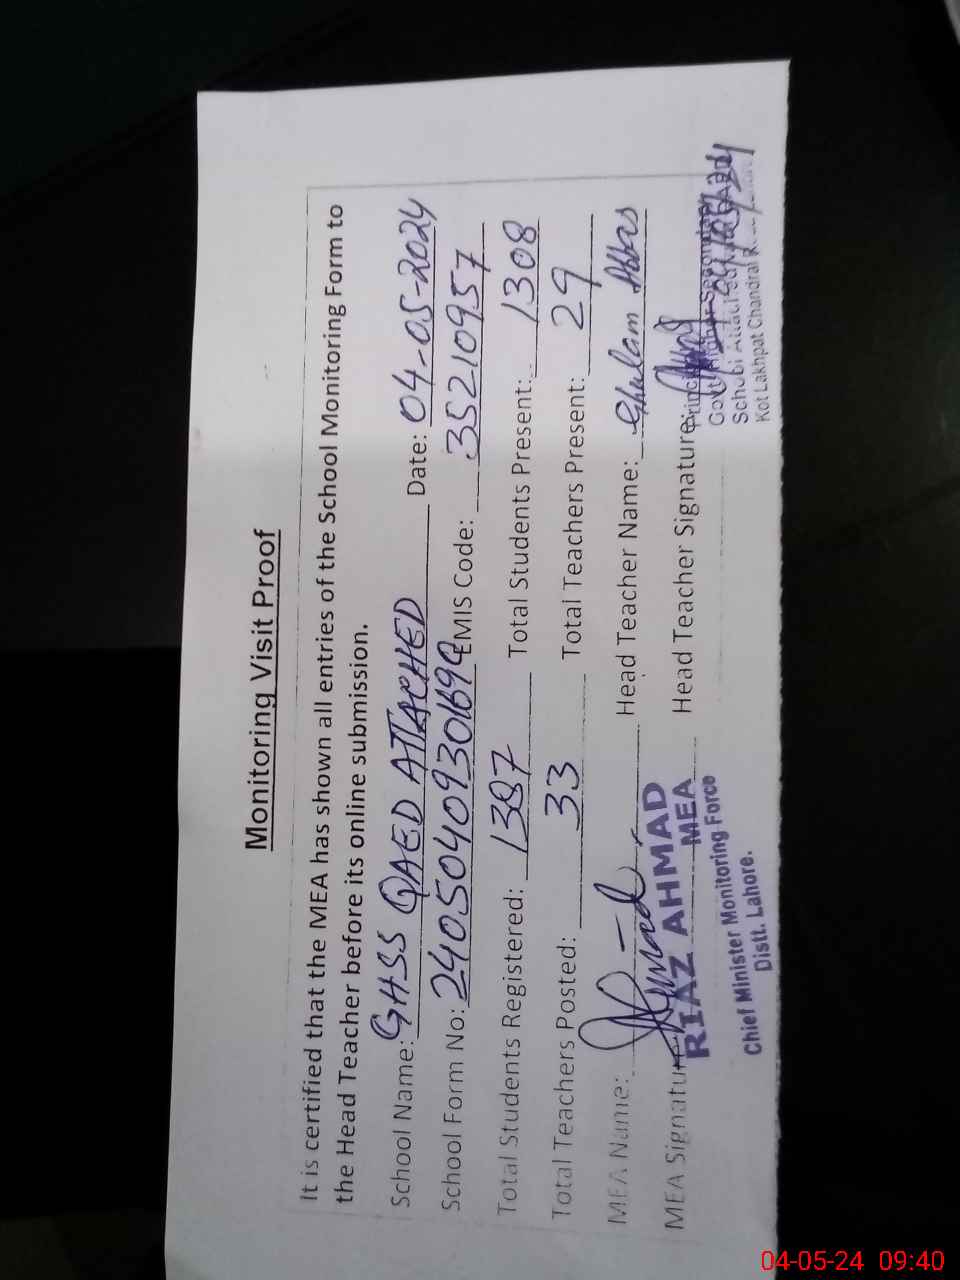 Monitoring Visit Proof
It is certified that the MEA has shown all entries of the School Monitoring Form to
the Head Teacher before its online submission.
School Name: GHSS QAED ATTACHED Date: 04-05-2024
School Form No: EMIS Code: 35210957
Total Students Registered: 1387 Total Students Present: 1308
Total Teachers Posted: 33 Total Teachers Present: 29
MEA Name: Head Teacher Name: Ghulam Abbas
MEA Signature: Head Teacher Signature:
RIAZ AHMAD
MEA
Chief Minister Monitoring Force
Distt. Lahore.
Govt. Higher Secondary
School
Kot Lakhpat Chandrai
04-05-24 09:40